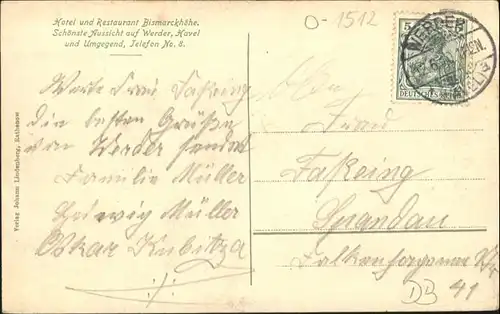 Hotel und Restaurant Bismarckhöhe.
Schönste Aussicht auf Werder, Havel
und Umgegend, Telefon No. 8.
O-1512
5
WERDER
DEUTSCHES REICH
Werte Frau Faßeing
die besten Grüße
von Werder sendet
Familie Müller
Hedwig Müller
Oskar Kubitza
Frau
Faßeing
Spandau
DB 41
Verlag Johann Lindenberg, Rathenow